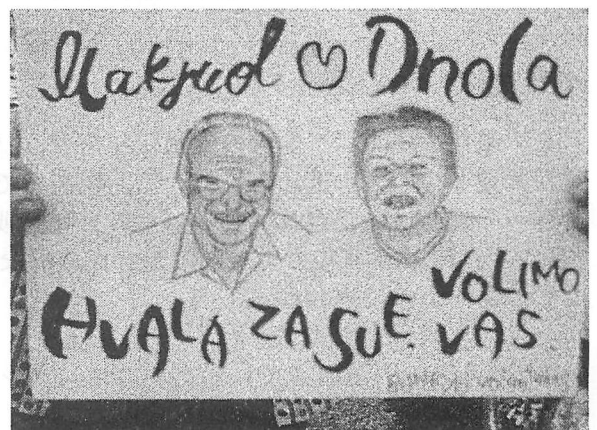 Dnola
HVALA ZA SVE.
VOLIMO
VAS.